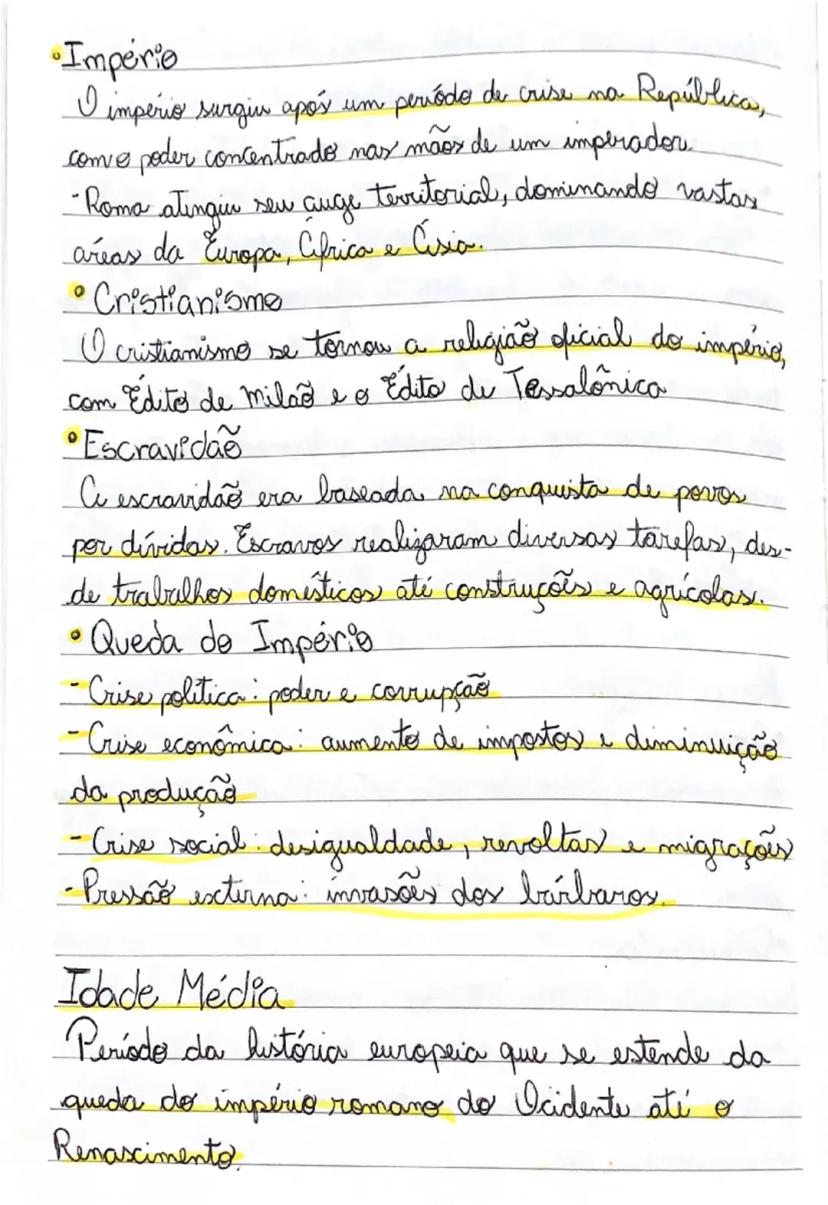 • Império
O império surgiu após um período de crise na República,
com o poder concentrado nas mãos de um imperador.
- Roma atingiu seu auge territorial, dominando vastas
áreas da Europa, África e Ásia.
• Cristianismo
O cristianismo se tornou a religião oficial do império,
com Édito de Milão e o Édito de Tessalônica
• Escravidão
A escravidão era baseada na conquista de povos
por dívidas. Escravos realizaram diversas tarefas, des-
de trabalhos domésticos até construções e agrícolas.
• Queda do Império
- Crise política: poder e corrupção
- Crise econômica: aumento de impostos e diminuição
da produção
- Crise social: desigualdade, revoltas e migrações
- Pressão externa: invasões dos bárbaros.
Idade Média
Período da história europeia que se estende da
queda do império romano do Ocidente até o
Renascimento.